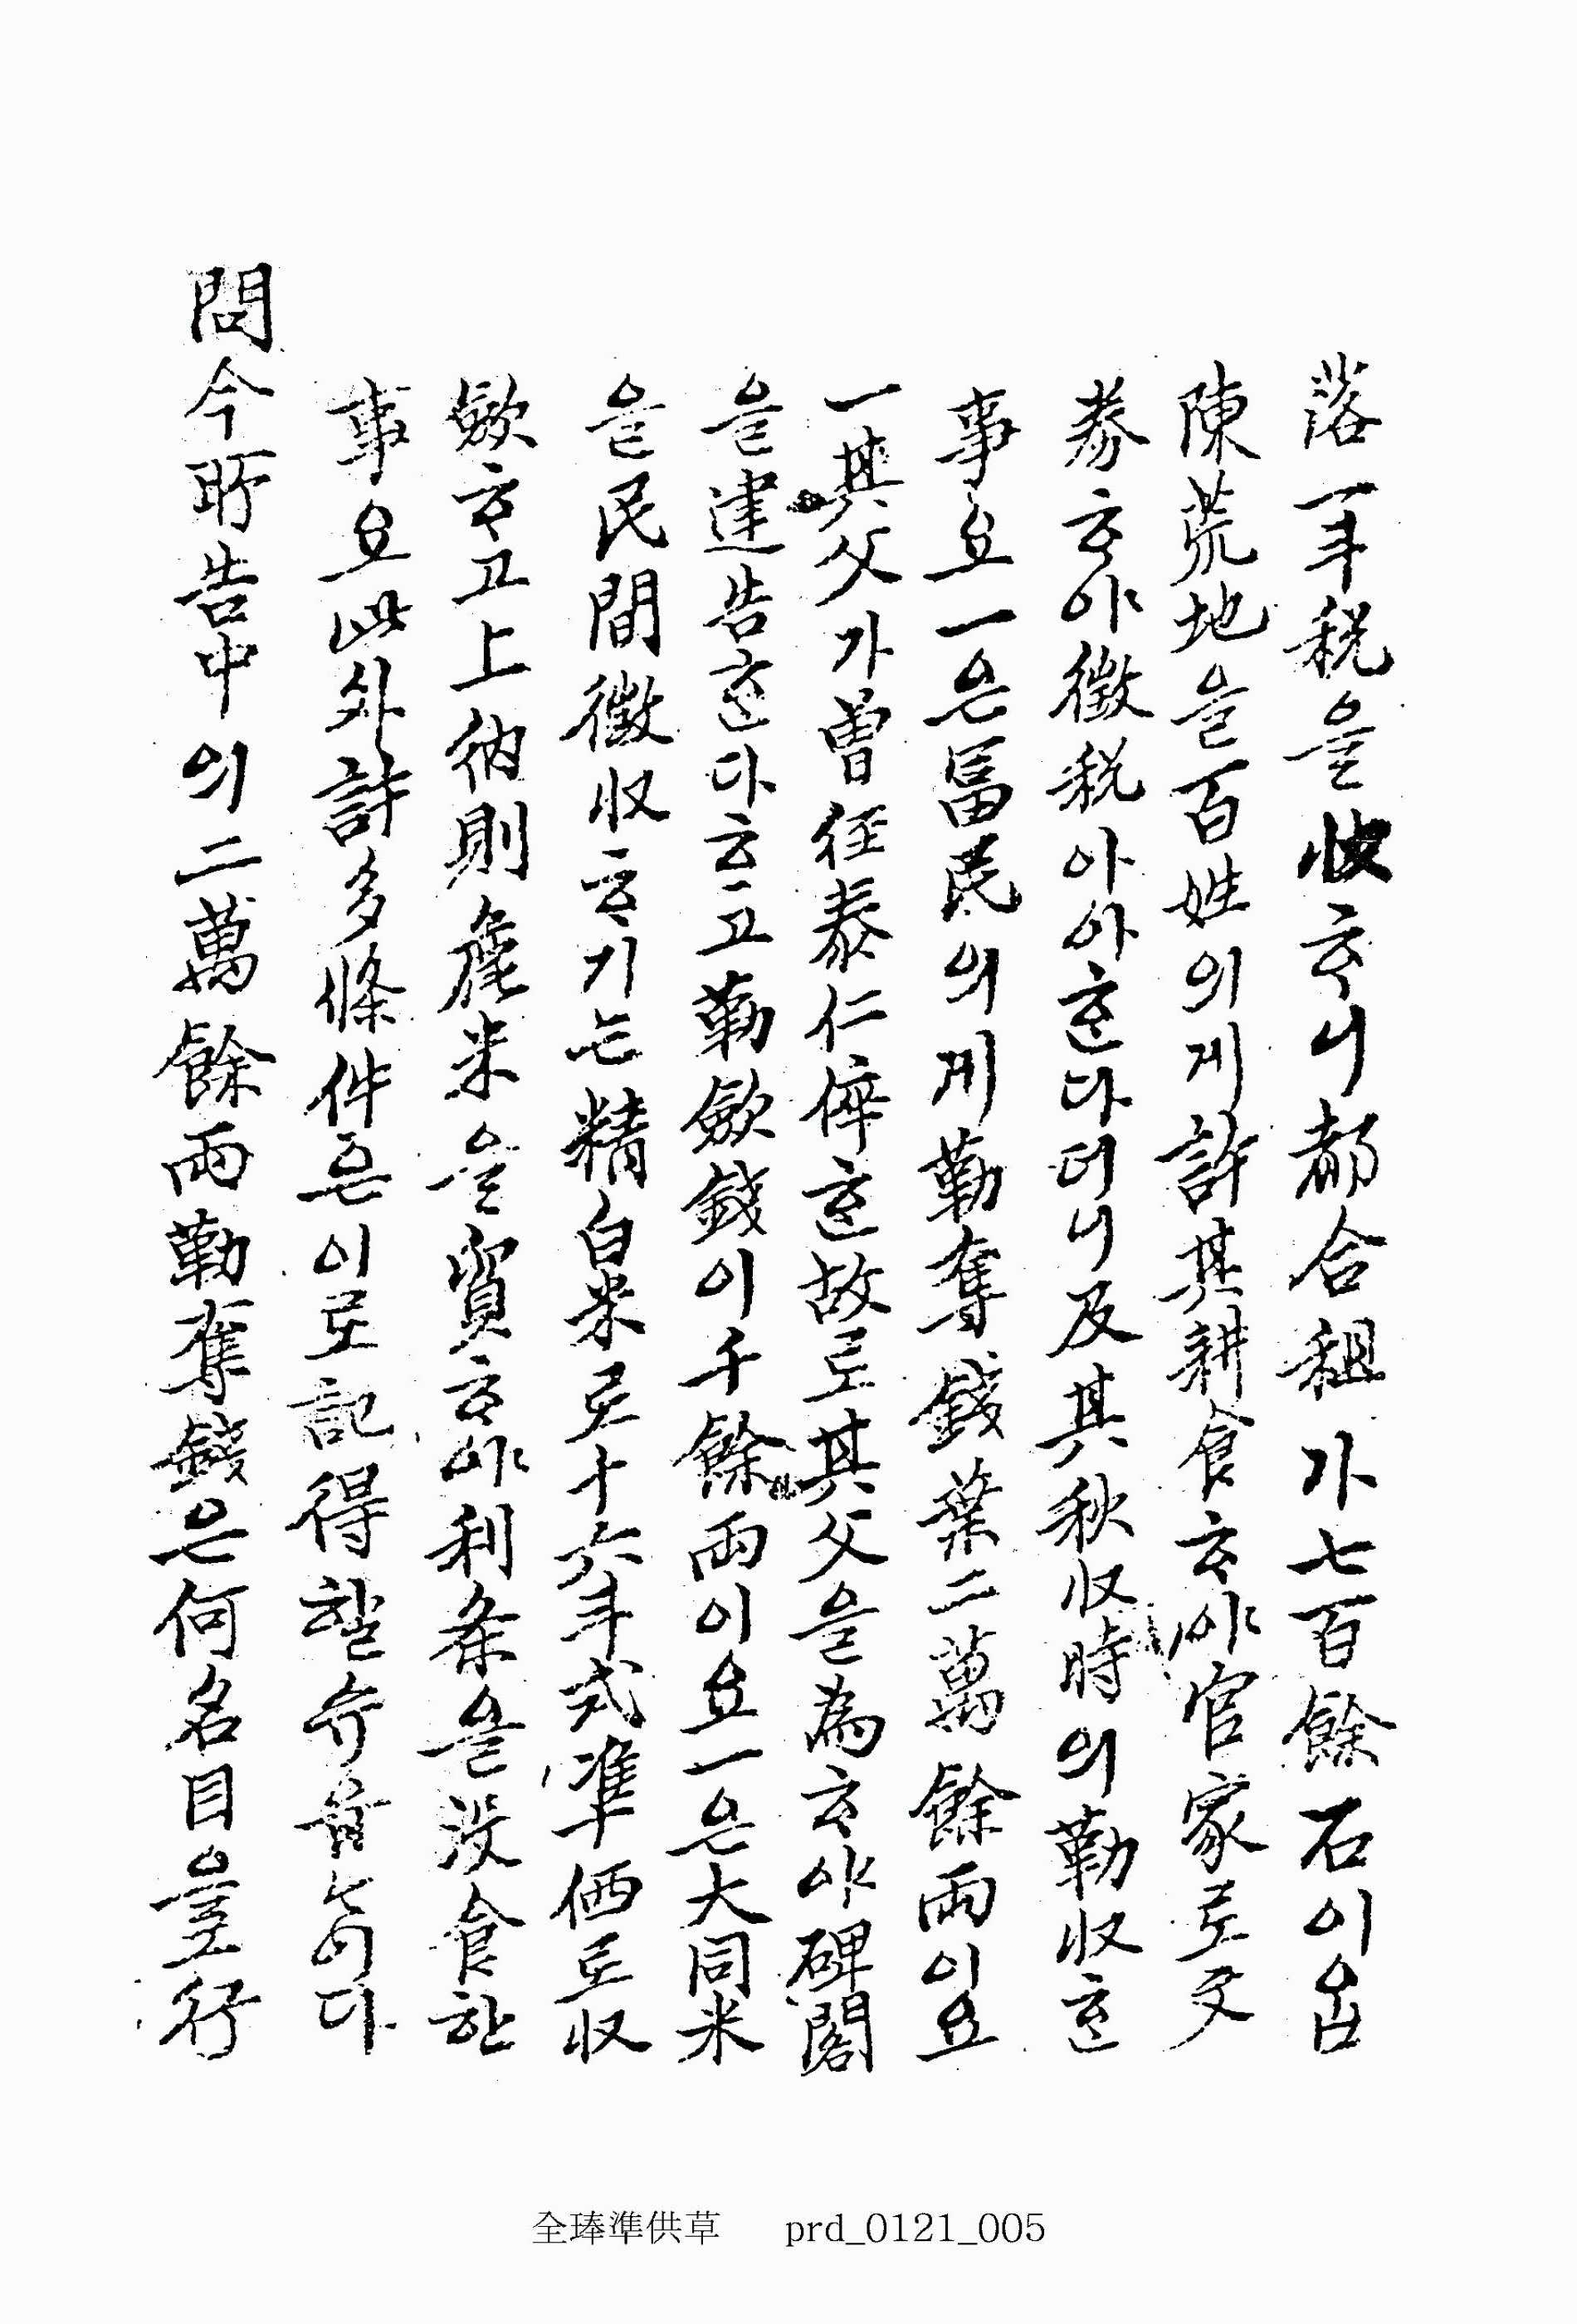 落一斗稅을收ᄒᆞ니都合租가七百餘石이요
陳荒地을百姓의게許其耕食ᄒᆞ야官家로文
券ᄒᆞ야徵稅아야ᄒᆞᆫ다더니及其秋收時의勒收ᄒᆞᆫ
事요一은富民의게勒奪錢葉二萬餘兩이요
一其父가曾經泰仁倅ᄒᆞᆫ故로其父을為ᄒᆞ야碑閣
을建告ᄒᆞᆫ다ᄒᆞ고勒斂錢이千餘兩이요一은大同米
을民間徵收ᄒᆞ기는精白米로十六斗式準価로收
斂ᄒᆞ고上納則麁米을貿ᄒᆞ야利条을沒食한
事요此外許多條件은이로記得할슈음ᄂᆡ다
問今所告中의二萬餘兩勒奪錢은何名目으로行